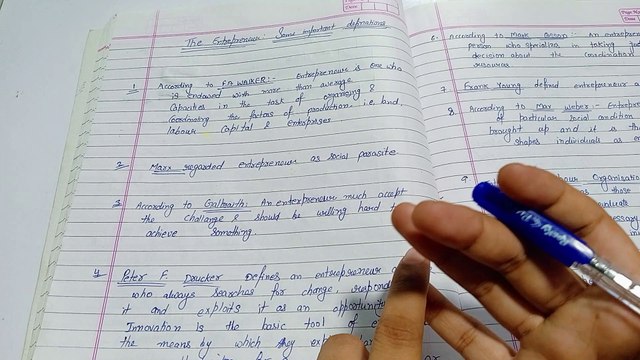 The Entrepreneur: Some important definations
1 According to F.A. WALKER:- Entrepreneur is one who
is endowed with more than average
Capacities in the task of organizing &
Coordinating the factors of production i.e. land,
labour capital & Enterprises
2 Marx regarded entrepreneur as social parasite
3 According to Galbraith: An enterpreneur much accept
the challange & should be willing hard
achieve something.
4 Peter F. Drucker Defines an entrepreneur
who always searches for change, respond
it and exploits it as an opportunity
Innovation is the basic tool of
the means by which they
6. According to Mark Casson:- An entrepren
person who specialies in taking
decision about the coordination
resources
7. Frank Young defined entrepreneur
8. According to Max Weber:- Entrep
of particular social condition
brought up and it is th
shapes individuals as
9 our Organisatio
as those
evaluate
essary